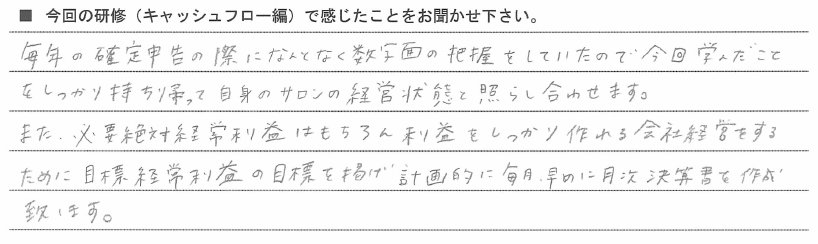 ■ 今回の研修（キャッシュフロー編）で感じたことをお聞かせ下さい。
毎年の確定申告の際になんとなく数字面の把握をしていたので今回学んだこと
をしっかり持ち帰って自身のサロンの経営状態と照らし合わせます。
また、必要絶対経常利益はもちろん利益をしっかり作れる会社経営をする
ために目標経常利益の目標を掲げ計画的に毎月、早めに月次決算書を作成
致します。